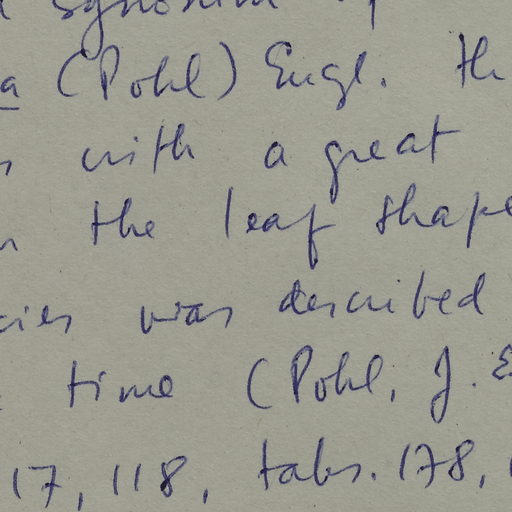 synonim
a (Pohl) Engl. th
with a great
n the leaf shape
cies was described
time (Pohl, J. E
17, 118, tabs. 178,